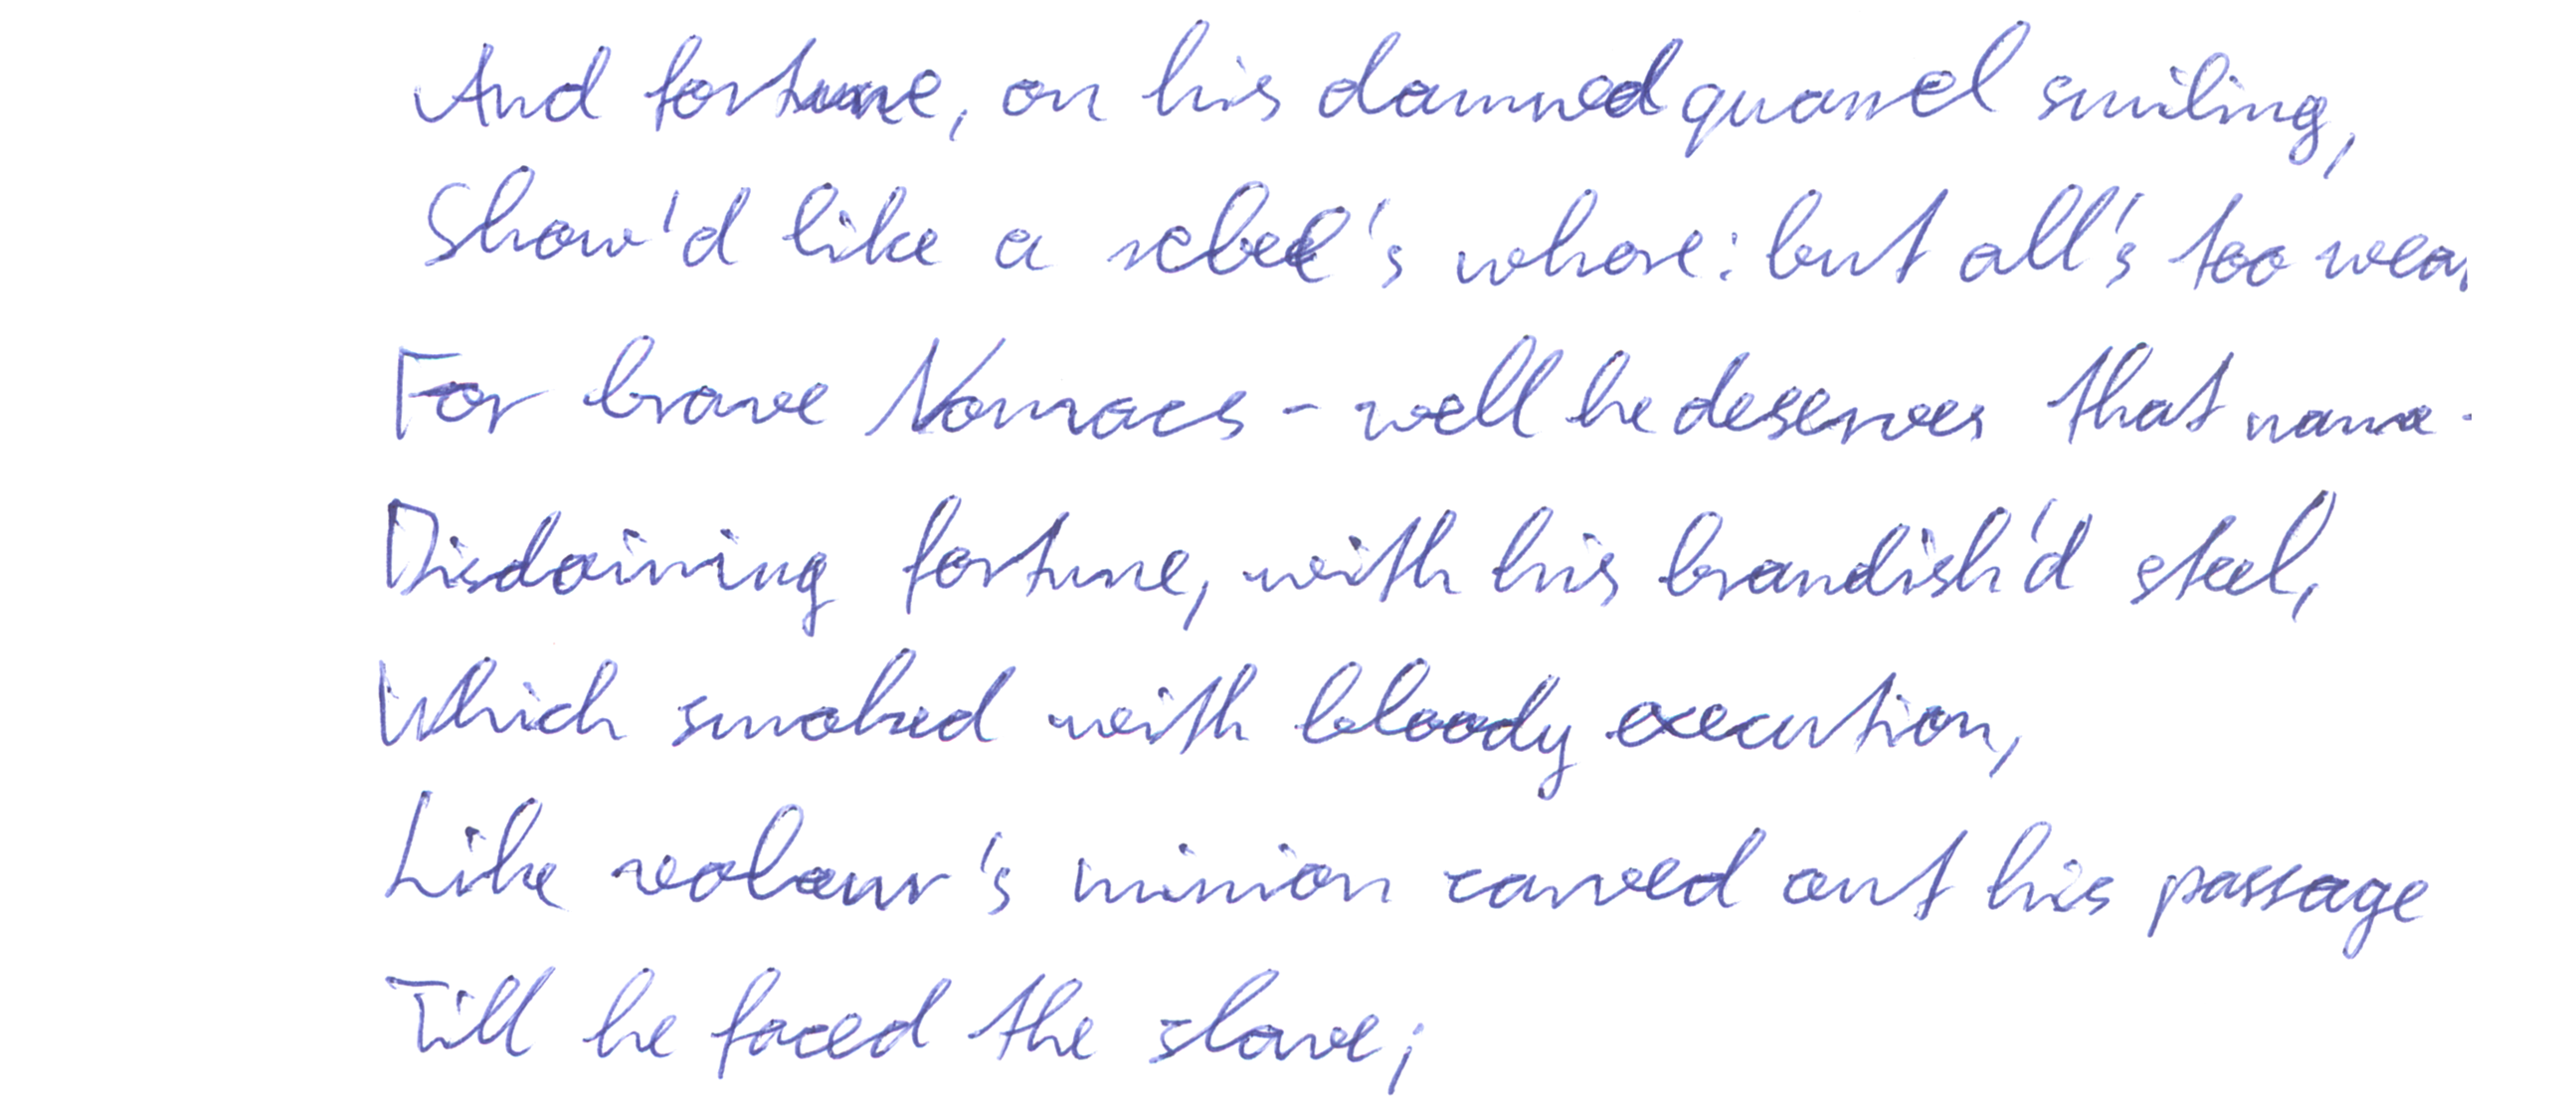 And fortune, on his damned quarrel smiling,
Show'd like a rebel's whore: but all's too weak
For brave Nomacs - well he deserves that name -
Disdaining fortune, with his brandish'd steel,
Which smoked with bloody execution,
Like valour's minion carved out his passage
Till he faced the slave;